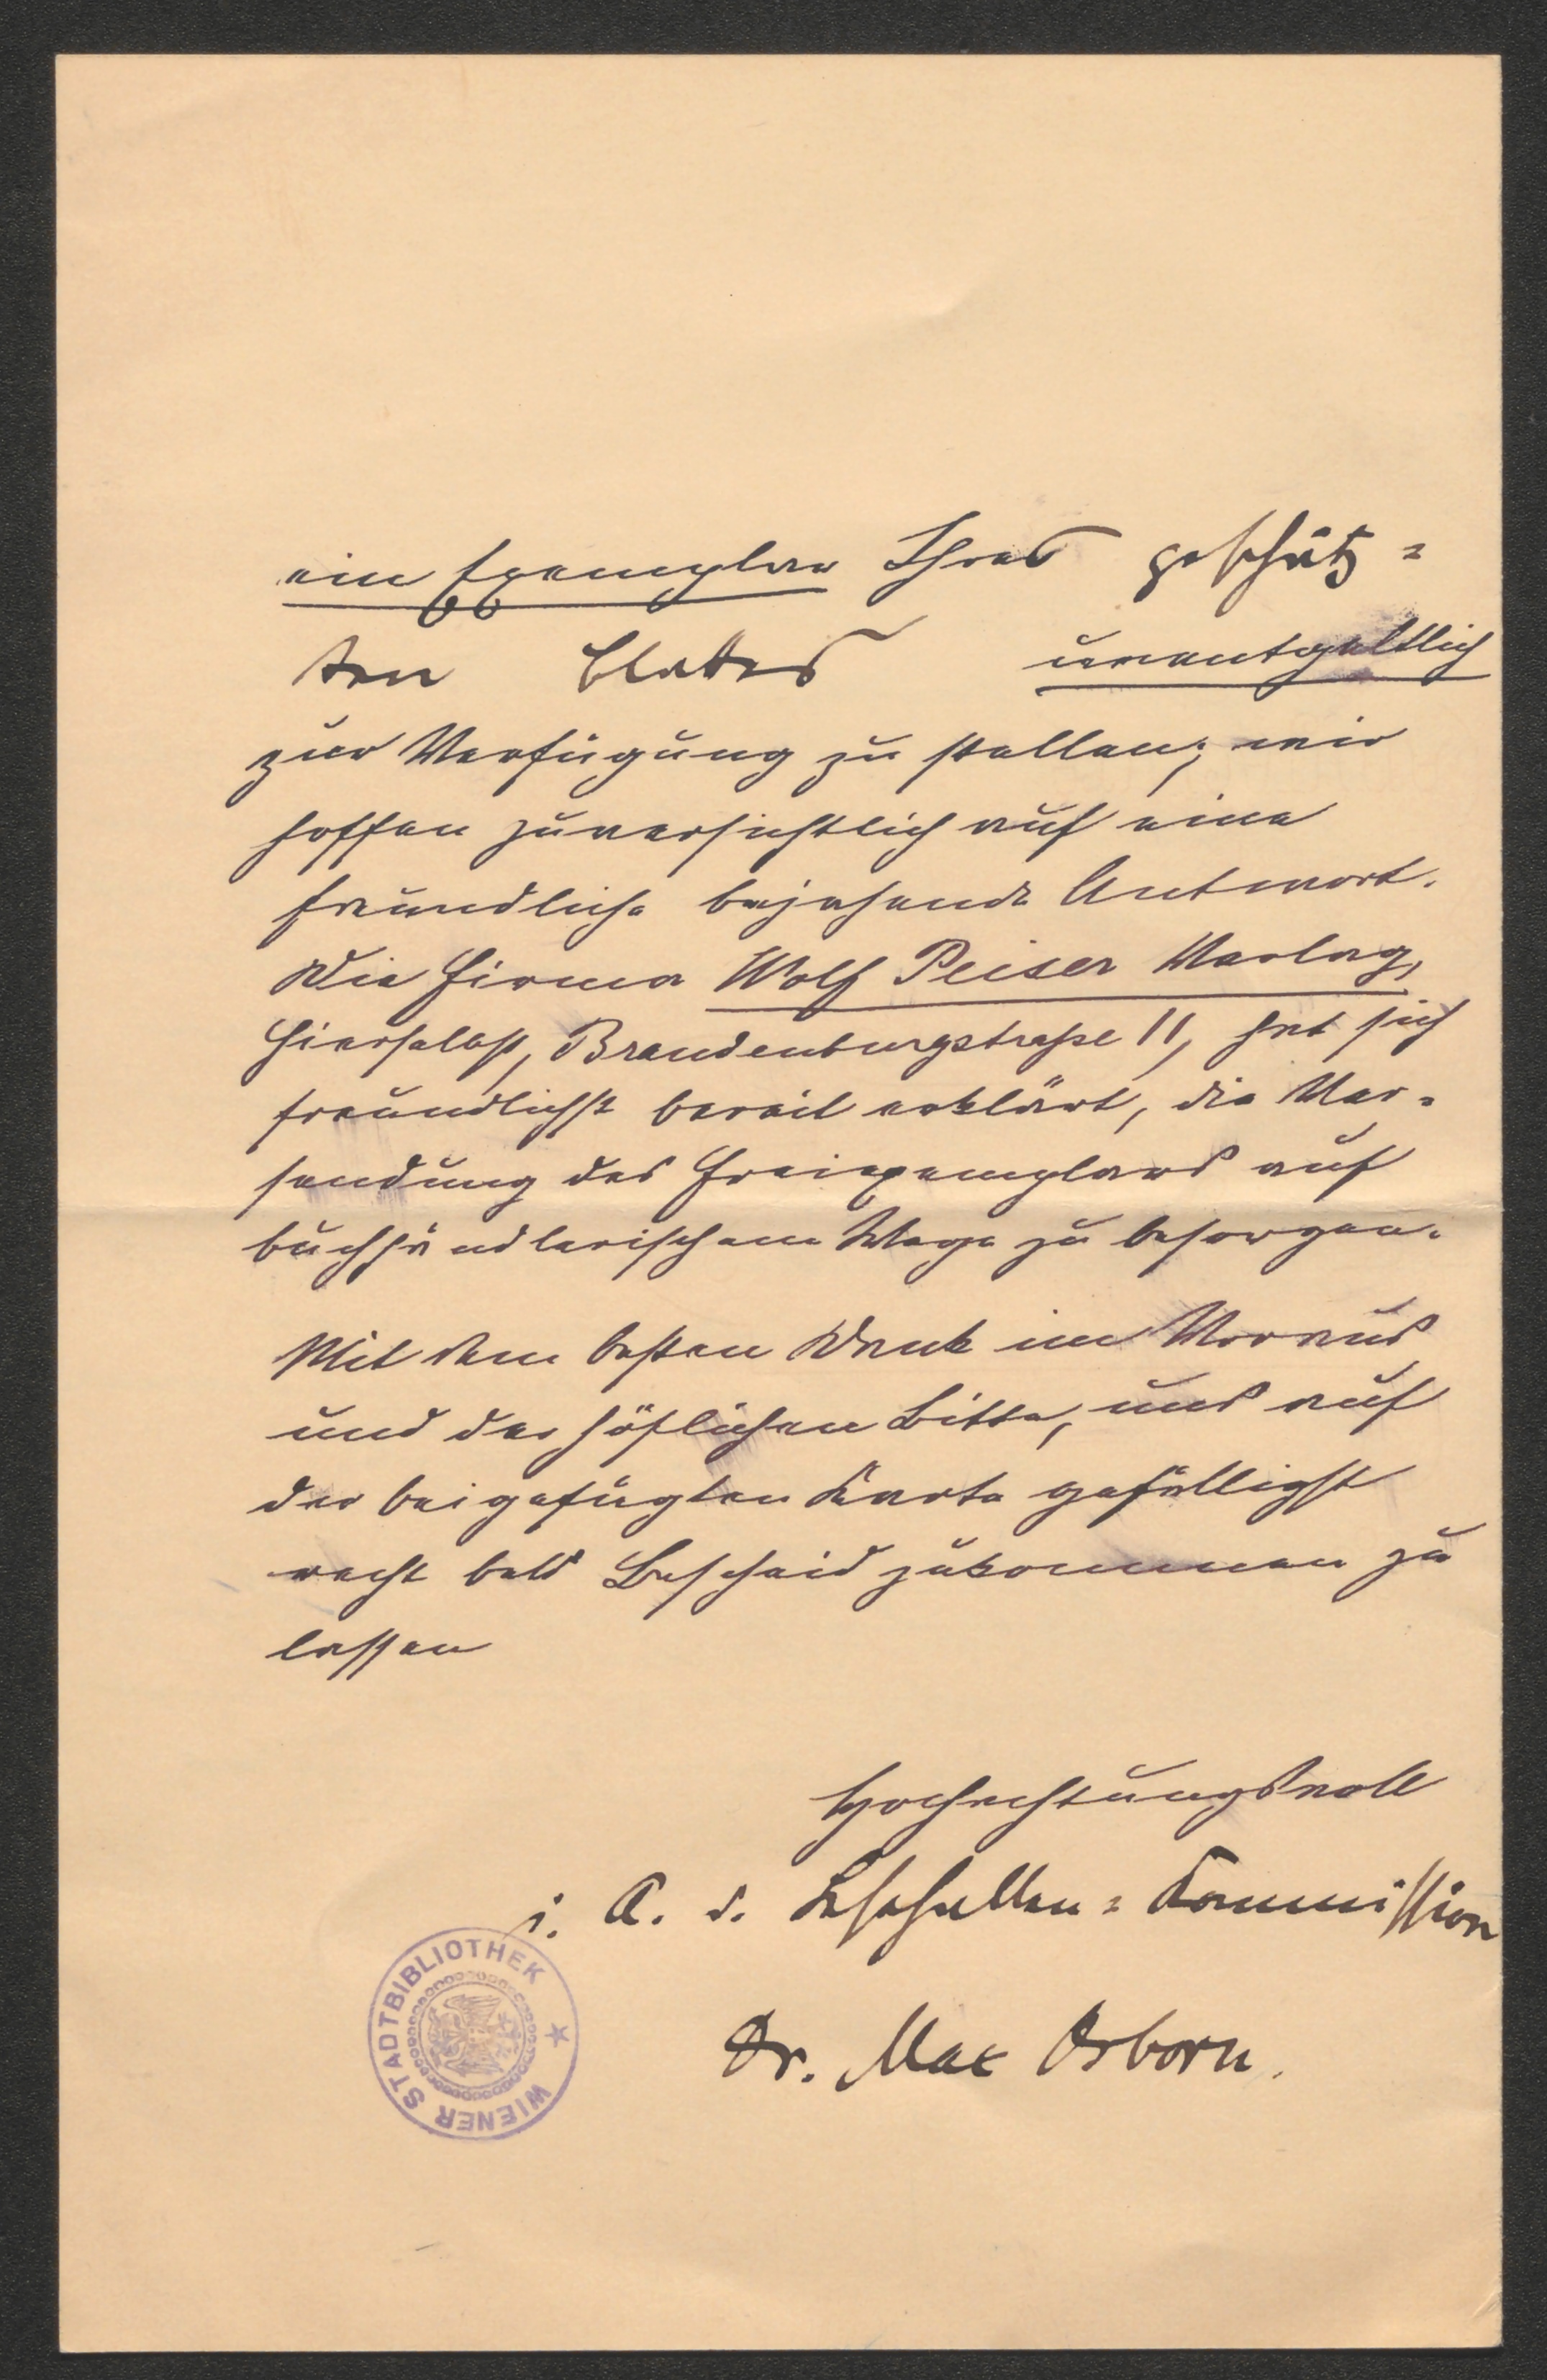 ein Exemplar Ihres geschätz=
ten Blattes unentgeltlich
zur Verfügung zu stellen; wir
hoffen zuversichtlich auf eine
freundliche bejahende Antwort.
Die Firma Wolf Peiser Verlag,
hierselbst, Brandenburgstraße 11, hat sich
freundlichst bereit erklärt, die Ver=
sendung des Freiexemplars auf
buchhändlerischem Wege zu besorgen.
Mit dem besten Dank im Voraus
und der höflichen Bitte, uns auf
der beigefügten Karte gefälligst
recht bald Bescheid zukommen zu
lassen
Hochachtungsvoll
i. A. d. Lesehallen=Kommission
Dr. Max Osborn.
WIENER STADTBIBLIOTHEK